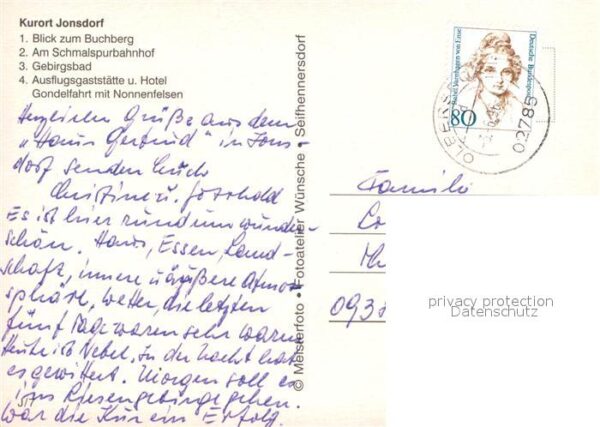 Kurort Jonsdorf
1. Blick zum Buchberg
2. Am Schmalspurbahnhof
3. Gebirgsbad
4. Ausflugsgaststätte u. Hotel
Gondelfahrt mit Nonnenfelsen
Herzlichen Grüße aus dem
"Haus Gertrud" in Jons-
dorf senden Euch
Christine u. Gotthold
Es ist hier rundum wunder-
schön. Haus, Essen, Land-
schaft, innere u. äußere Atmo-
sphäre, Wetter, die letzten
fünf Tage waren sehr warm
Heute ist Nebel, in der Nacht hat
es gewittert. Morgen soll es
ins Riesengebirge gehen.
War die Kur ein Erfolg.
© Meisterfoto • Fotoatelier Wünsche • Seifhennersdorf
Rahel Varnhagen von Ense
Deutsche Bundespost
80
OLBERS
02785
Familie
093
privacy protection
Datenschutz